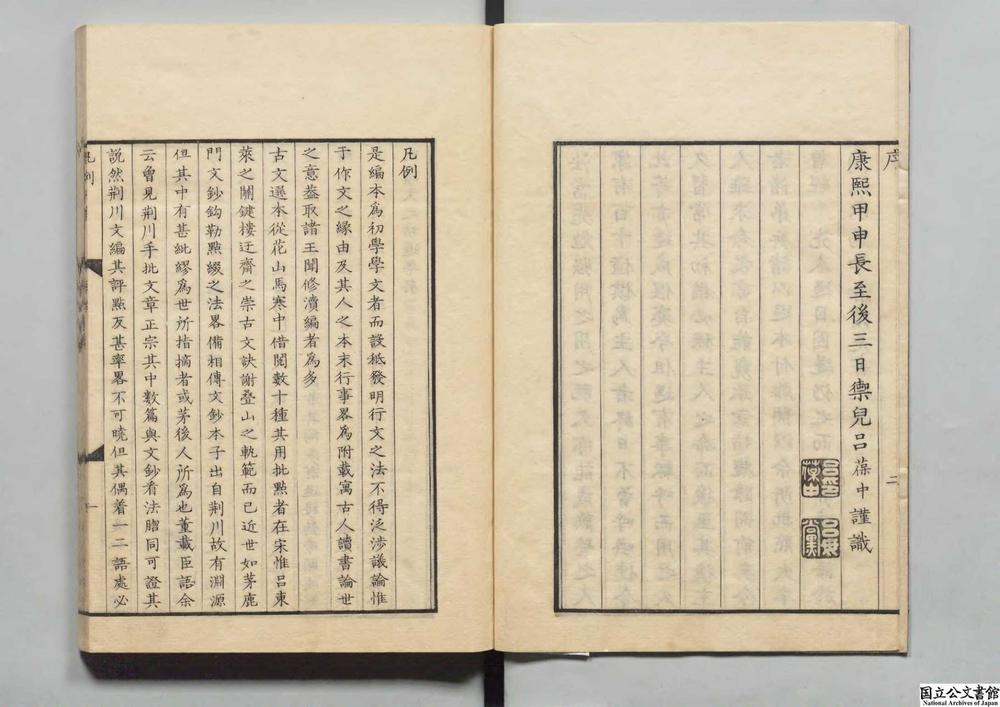 序
康熙甲申長至後三日禦兒呂葆中謹識
二
凡例
是編本爲初學學文者而設秪發明行文之法不得泛涉議論惟
于作文之緣由及其人之本末行事畧爲附載寓古人讀書論世
之意葢取諸王聞修瀆編者爲多
古文選本從花山馬寒中借閱數十種其用批㸃者在宋惟呂東
萊之關鍵樓迂齋之崇古文訣謝疊山之軌範而已近世如茅鹿
門文鈔鈎勒㸃綴之法畧備相傳文鈔本子出自荆川故有淵源
但其中有甚紕繆爲世所指摘者或茅後人所爲也董載臣語余
云曾見荆川手批文章正宗其中數篇與文鈔看法脗同可證其
說然荆川文編其評㸃反甚率畧不可曉但其偶着一二語處必
凡例
一
国立公文書館
National Archives of Japan